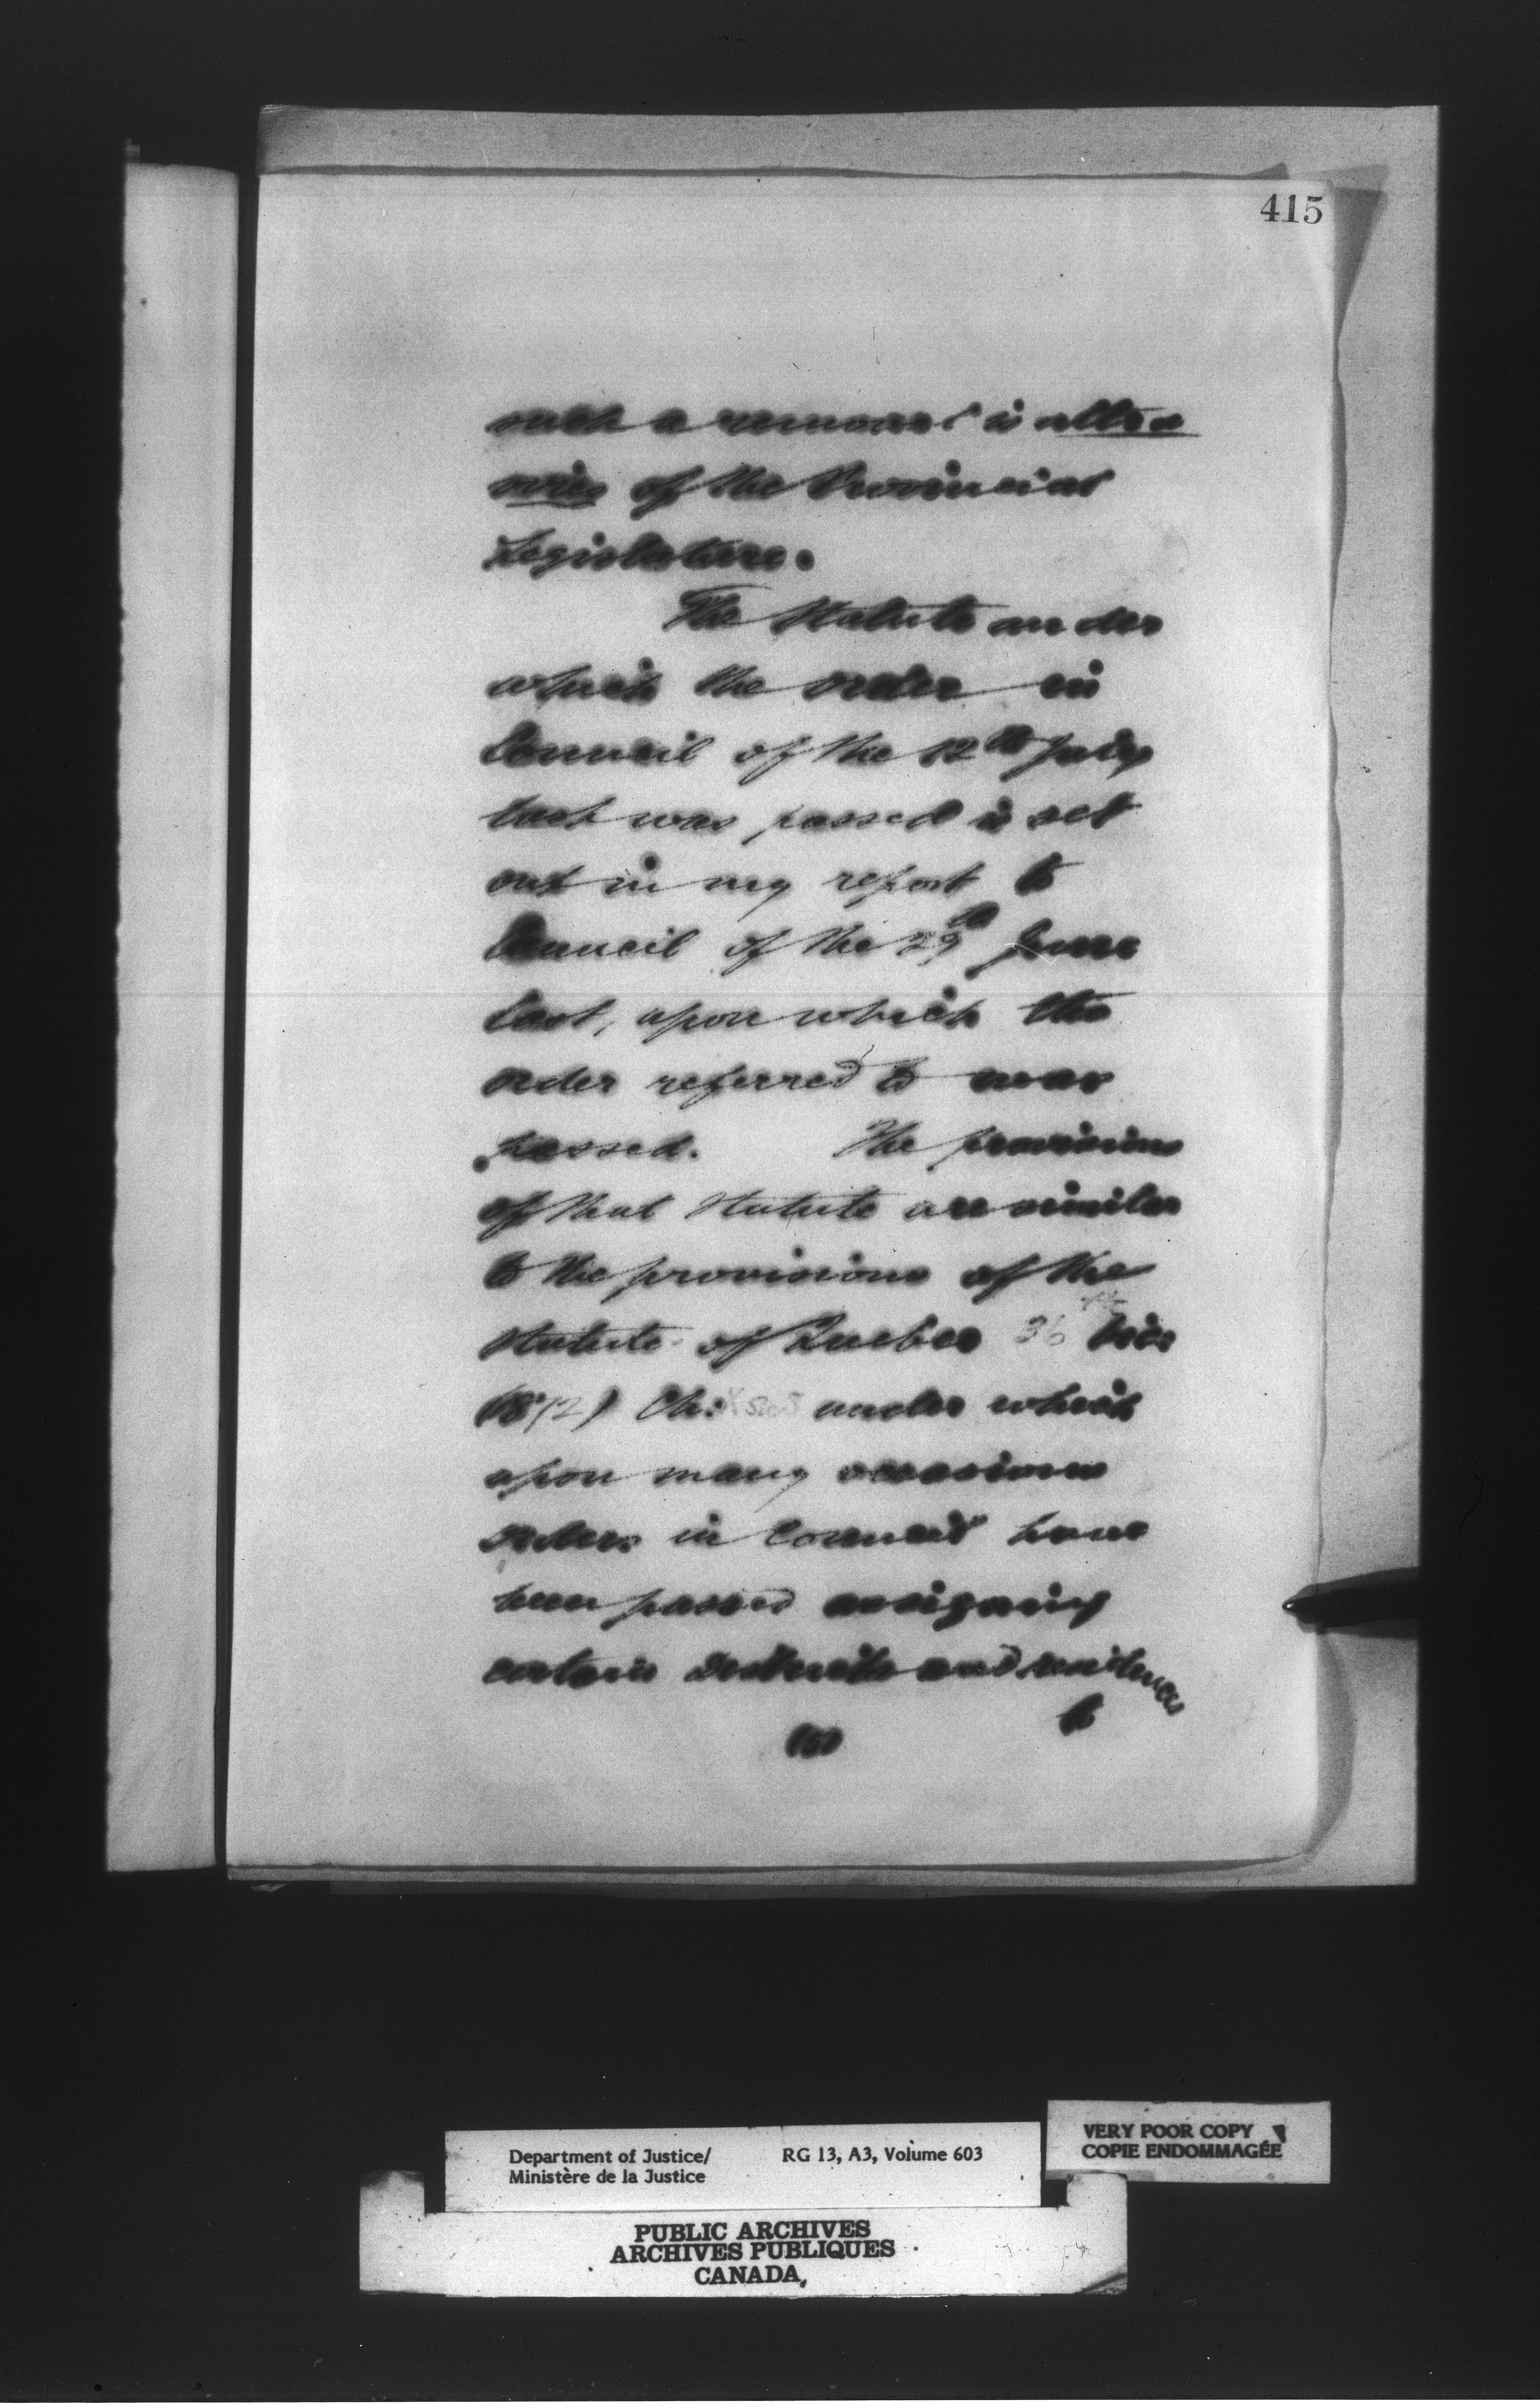 415
such a removal is ultra
vires of the Provincial
Legislature.
The Statute under
which the order in
Council of the 12th July
last was passed is set
out in my report to
Council of the 29th June
last, upon which the
order referred to was
passed. The provisions
of that Statute are similar
to the provisions of the
Statute of Quebec 36 Vic
(1872) Ch: under which
upon many occasions
orders in Council have
been passed assigning
certain Districts and residences
to
Department of Justice/
Ministère de la Justice
RG 13, A3, Volume 603
VERY POOR COPY
COPIE ENDOMMAGÉE
PUBLIC ARCHIVES
ARCHIVES PUBLIQUES
CANADA